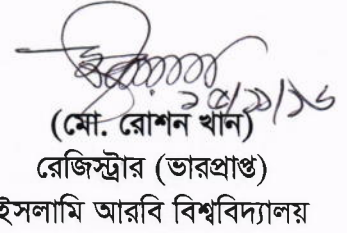 (মো. রোশন খান)
রেজিস্ট্রার (ভারপ্রাপ্ত)
ইসলামি আরবি বিশ্ববিদ্যালয়